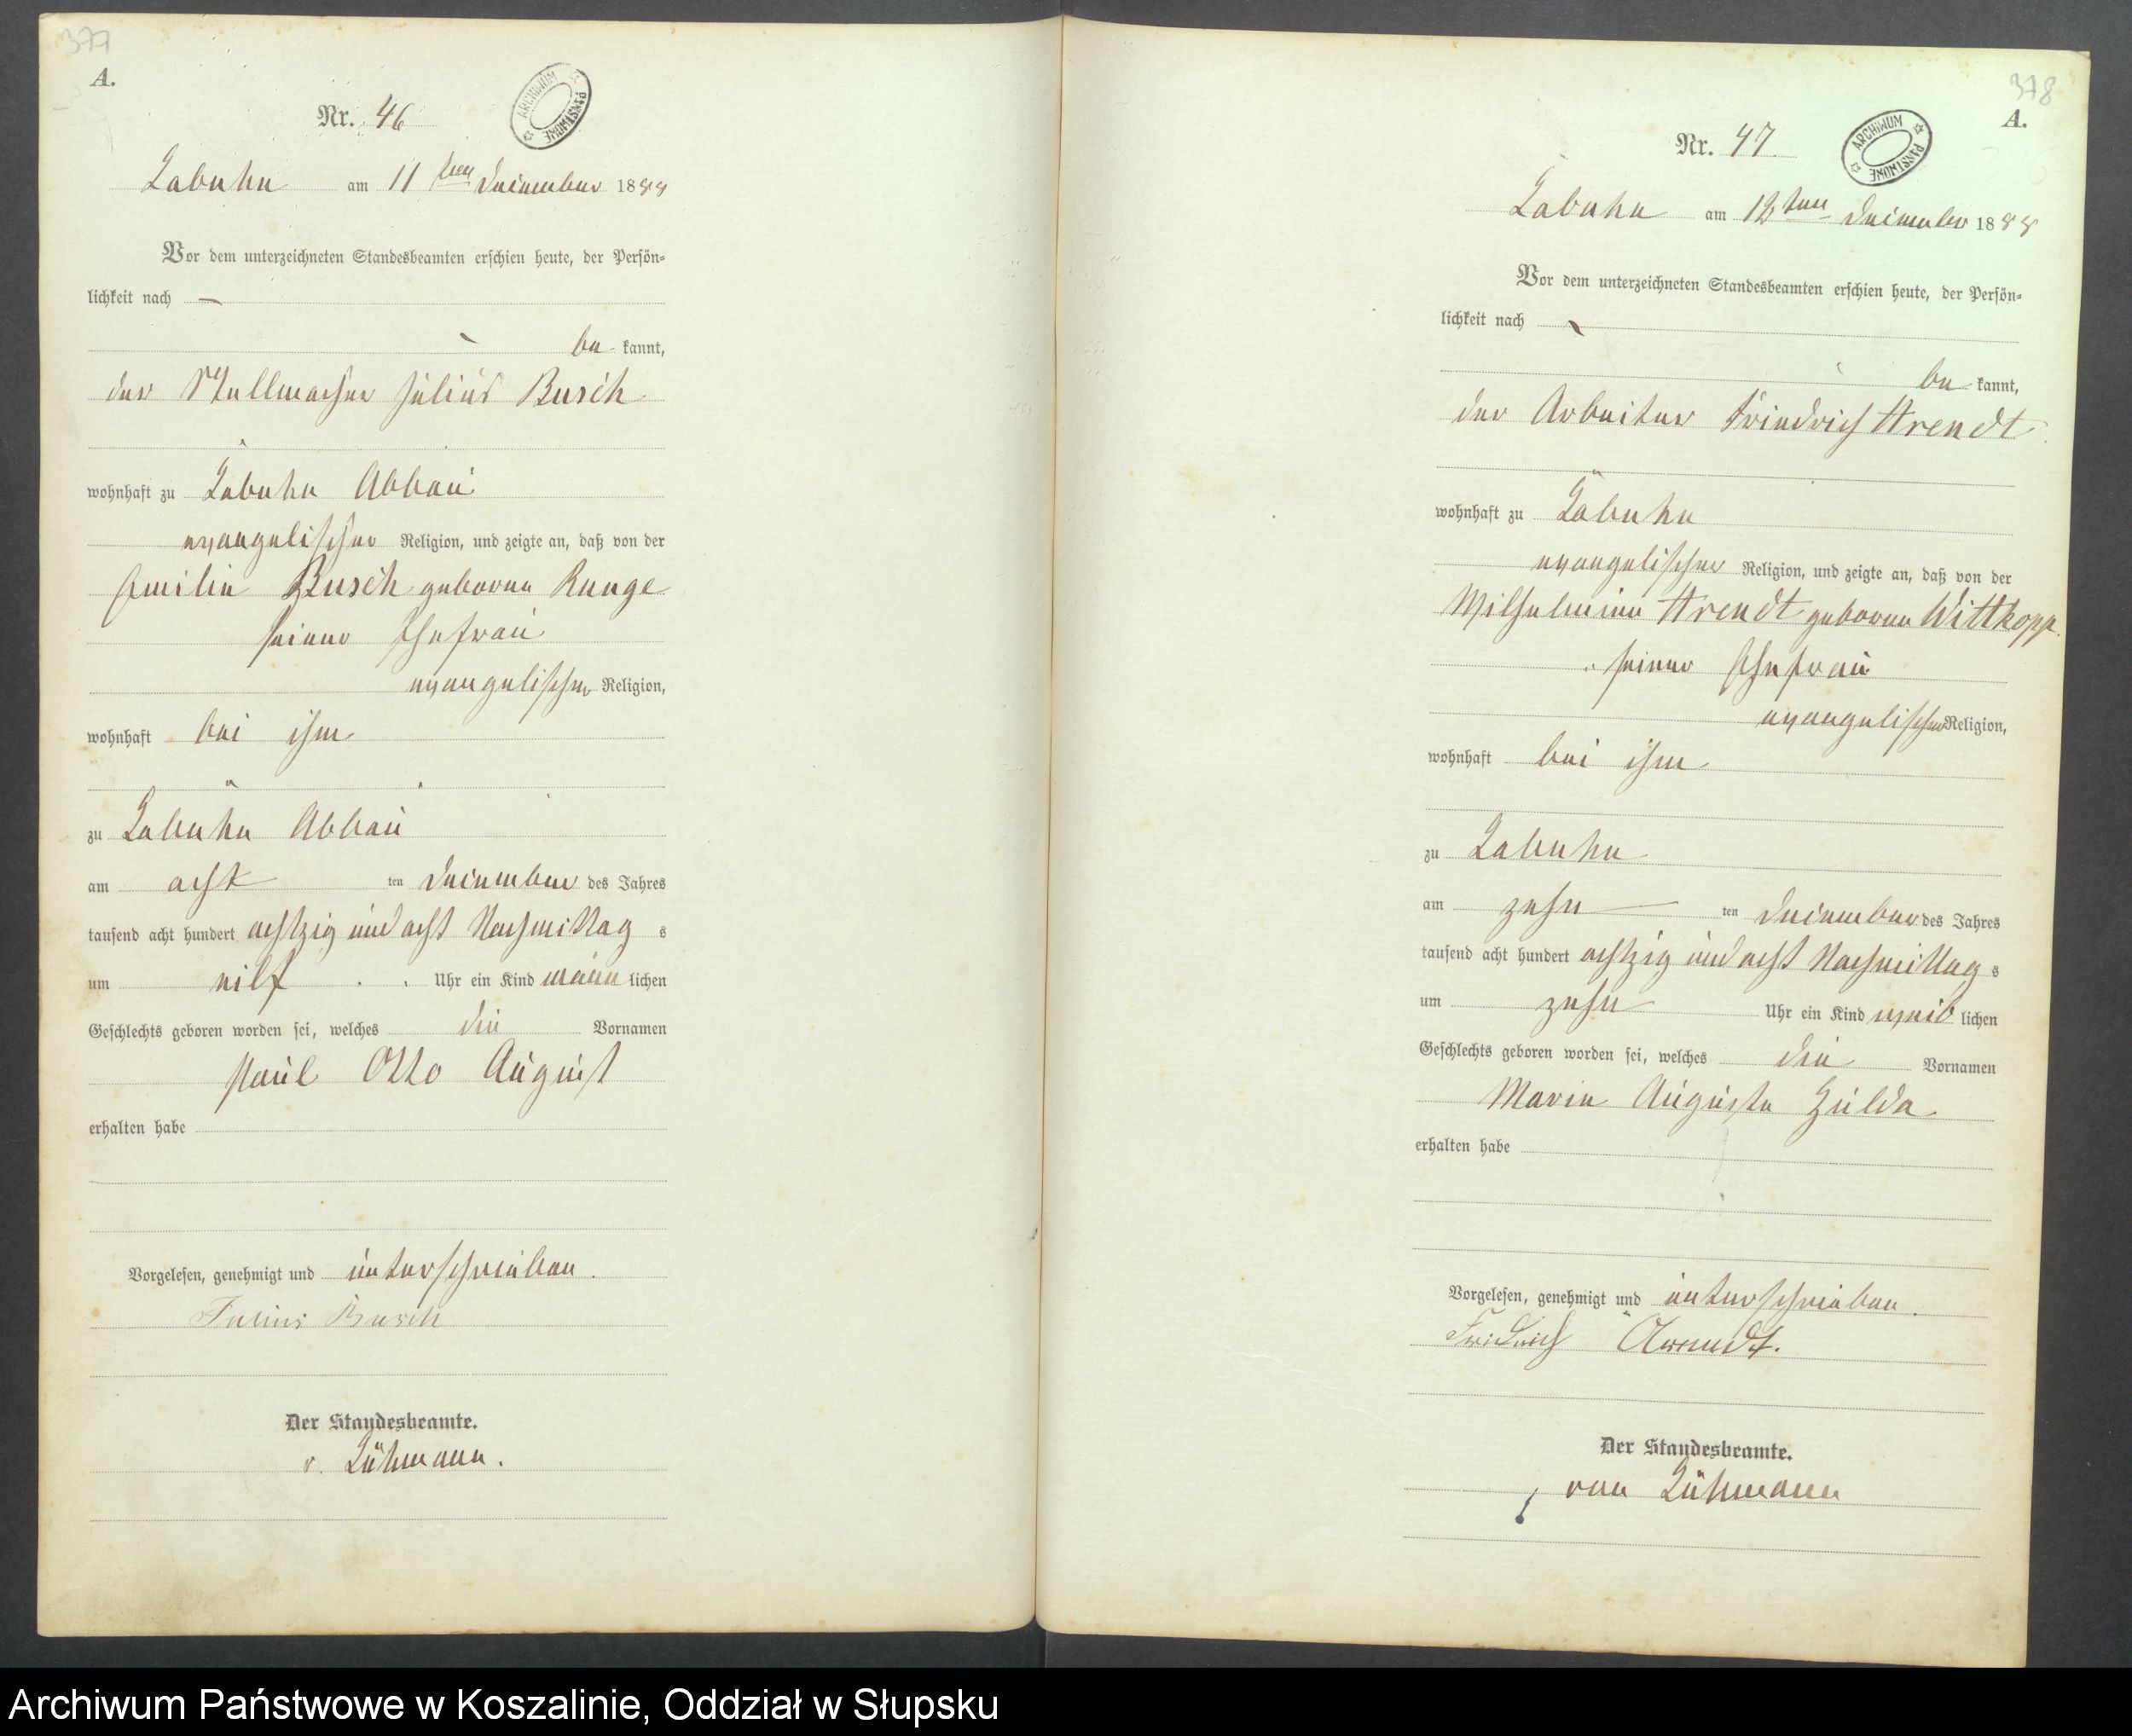 377
A.
Nr. 46
ARCHIWUM PAŃSTWOWE
Labuhn am 11ten December 1888
Vor dem unterzeichneten Standesbeamten erschien heute, der Persön-
lichkeit nach
be kannt,
der Stellmacher Julius Busch
wohnhaft zu Labuhn Abbau
evangelischer Religion, und zeigte an, daß von der
Emilie Busch geborne Runge
seiner Ehefrau
evangelischer Religion,
wohnhaft bei ihm
zu Labuhn Abbau
am acht ten December des Jahres
tausend acht hundert achtzig und acht Nachmittag s
um eilf Uhr ein Kind männ lichen
Geschlechts geboren worden sei, welches die Vornamen
Paul Otto August
erhalten habe
Vorgelesen, genehmigt und unterschrieben.
Julius Busch
Der Standesbeamte.
v. Lühmann.
378
A.
Nr. 47.
ARCHIWUM PAŃSTWOWE
Labuhn am 12ten December 1888
Vor dem unterzeichneten Standesbeamten erschien heute, der Persön-
lichkeit nach
be kannt,
der Arbeiter Friedrich Arendt
wohnhaft zu Labuhn
evangelischer Religion, und zeigte an, daß von der
Wilhelmine Arendt geborne Wittkopp
seiner Ehefrau
evangelischer Religion,
wohnhaft bei ihm
zu Labuhn
am zehn ten December des Jahres
tausend acht hundert achtzig und acht Nachmittag s
um zehn Uhr ein Kind weib lichen
Geschlechts geboren worden sei, welches die Vornamen
Marie Auguste Hulda
erhalten habe
Vorgelesen, genehmigt und unterschrieben.
Friedrich Arendt.
Der Standesbeamte.
von Lühmann
Archiwum Państwowe w Koszalinie, Oddział w Słupsku